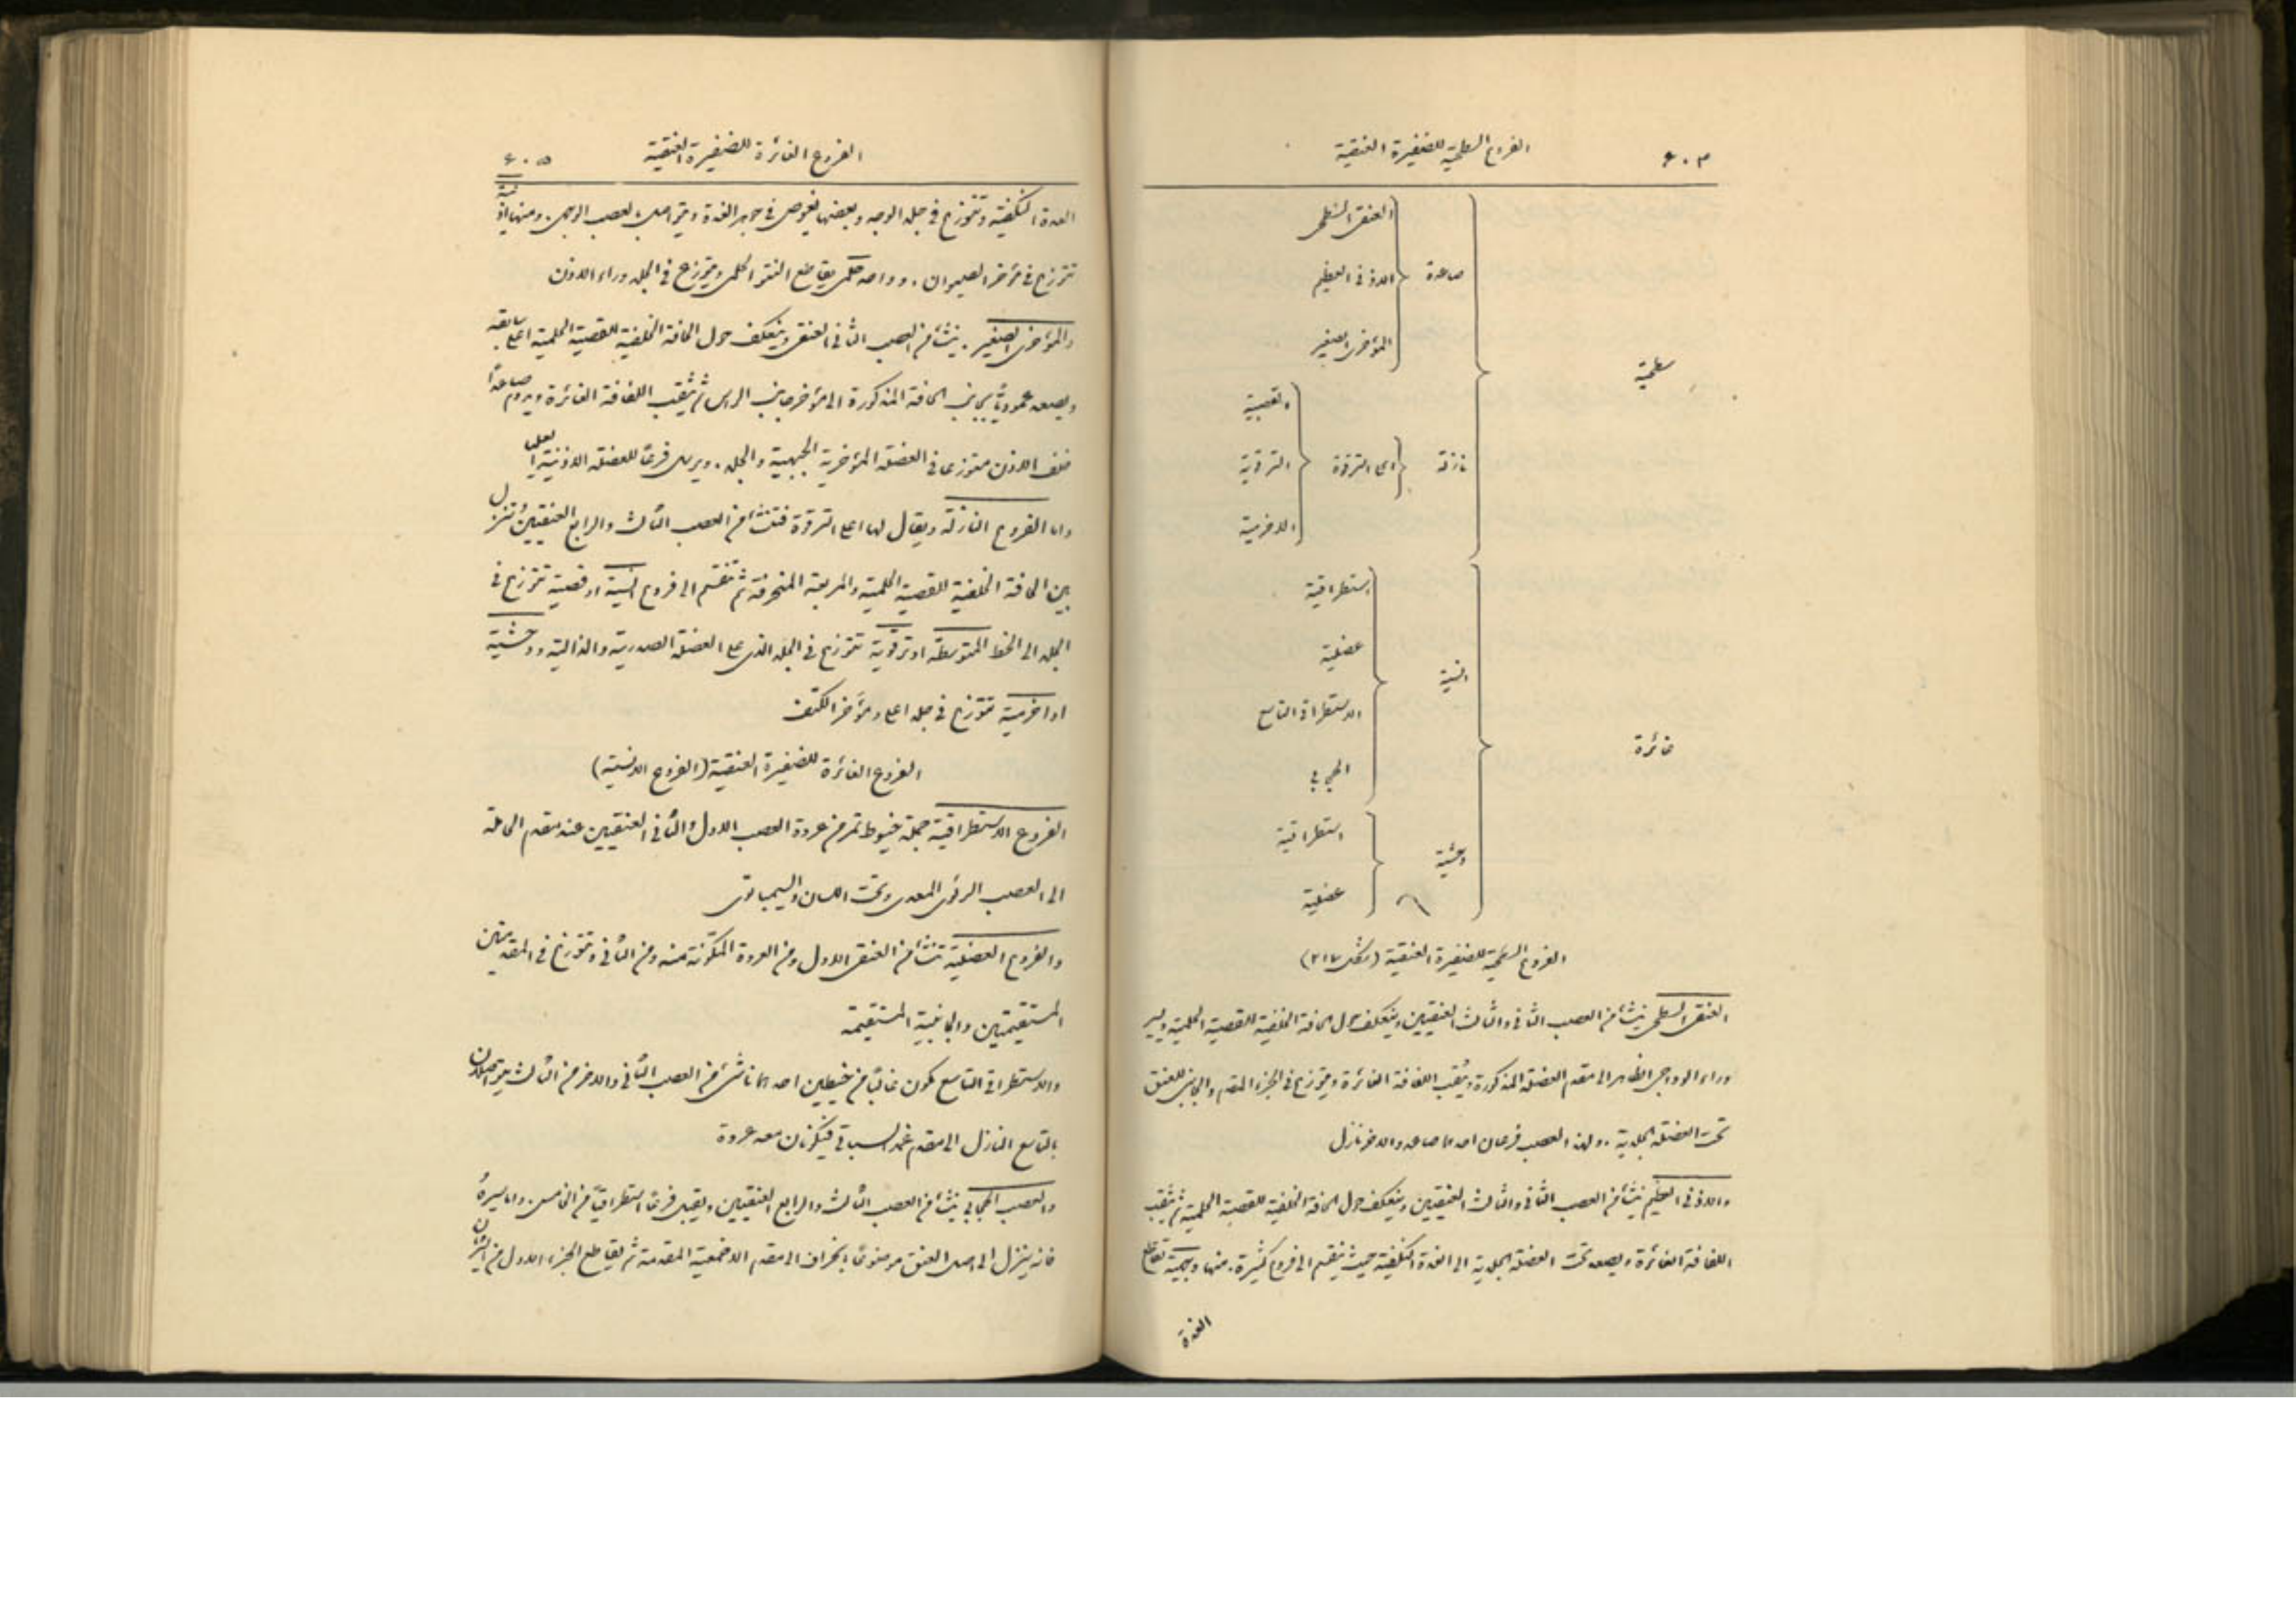 ٤٠٤ الفروع السطحية للضفيرة العنقية
سطحية
صاعدة
العنقى السطحى
الاذنى العظيم
المؤخرى الصغير
نازلة
اعلى الترقوة
القصية
الترقوية
الاخرمية
غائرة
انسية
استطراقية
عضلية
الاستطراقى التاسع
الحجابى
وحشية
استطراقية
عضلية
الفروع السطحية للضفيرة العنقية (شكل ٢١٧)
العنقى السطحى ينشأ من العصب الثانى والثالث العنقيين وينعكف حول الحافة الخلفية للقصية الحلمية ويسير
وراء الوداجى الظاهر الى مقدم العضلة المذكورة ويثقب اللفافة الغائرة ويتوزع فى الجزء المقدم والجانبى للعنق
تحت العضلة الجلدية. ولهذا العصب فرعان احدهما صاعد والاخر نازل
والاذنى العظيم ينشأ من العصب الثانى والثالث العنقيين وينعكف حول الحافة الخلفية للقصية الحلمية ثم يثقب
اللفافة الغائرة ويصعد تحت العضلة الجلدية الى الغدة النكفية حيث ينقسم الى فروع كثيرة. منها وجهية تقاطع
الغدة
الفروع الغائرة للضفيرة العنقية ٤٠٥
الغدة النكفية وتتوزع فى جلد الوجه وبعضها يغوص فى جوهر الغدة ويتواصل بالعصب الوجهى. ومنها اذنية
تتوزع فى مؤخر الصيوان. وواحد حلمى يقاطع النتو الحلمى ويتوزع فى الجلد وراء الاذن
والمؤخرى الصغير. ينشأ من العصب الثانى العنقى وينعكف حول الحافة الخلفية للقصية الحلمية اعلى سابقه
ويصعد عموديًا بجانب الحافة المذكورة الى مؤخر جانب الراس ثم يثقب اللفافة الغائرة ويدوم صاعدًا
خلف الاذن متوزعا فى العضلة المؤخرية الجبهية والجلد. ويرسل فرعًا للعضلة الاذنية العليا
واما الفروع النازلة ويقال لها اعلى الترقوة فتنشأ من العصب الثالث والرابع العنقيين وتنزل
بين الحافة الخلفية للقصية الحلمية والمربعة المنحرفة ثم تنقسم الى فروع انسية او قصية تتوزع فى
الجلد الى الخط المتوسط او ترقوية تتوزع فى الجلد الذى على العضلة الصدرية والدالية ووحشية
او اخرمية تتوزع فى جلد اعلى ومؤخر الكتف
الفروع الغائرة للضفيرة العنقية (الفروع الانسية)
الفروع الاستطراقية جملة خيوط تمر من عروة العصب الاول والثانى العنقيين عند مقدم الحاملة
الى العصب الرئوى المعدى وتحت اللسان والسيمباتوى
والفروع العضلية تنشأ من العنقى الاول ومن العروة المتكونة منه ومن الثانى وتتوزع فى المقدمتين
المستقيمتين والجانبية المستقيمة
والاستطراقى التاسع يكون غالبًا من خيطين احدهما ناشئ من العصب الثانى والاخر من الثالث يتواصلان
بالتاسع النازل الى مقدم غمد السباتى فيكونان معه عروة
والعصب الحجابى ينشأ من العصب الثالث والرابع العنقيين ويقبل فرعًا استطراقيًا من الخامس. واما سيره
فانه ينزل الى اصل العنق موضوعًا بانحراف الى مقدم الاخمعية المقدمة ثم يقاطع الجزء الاول من الشريان